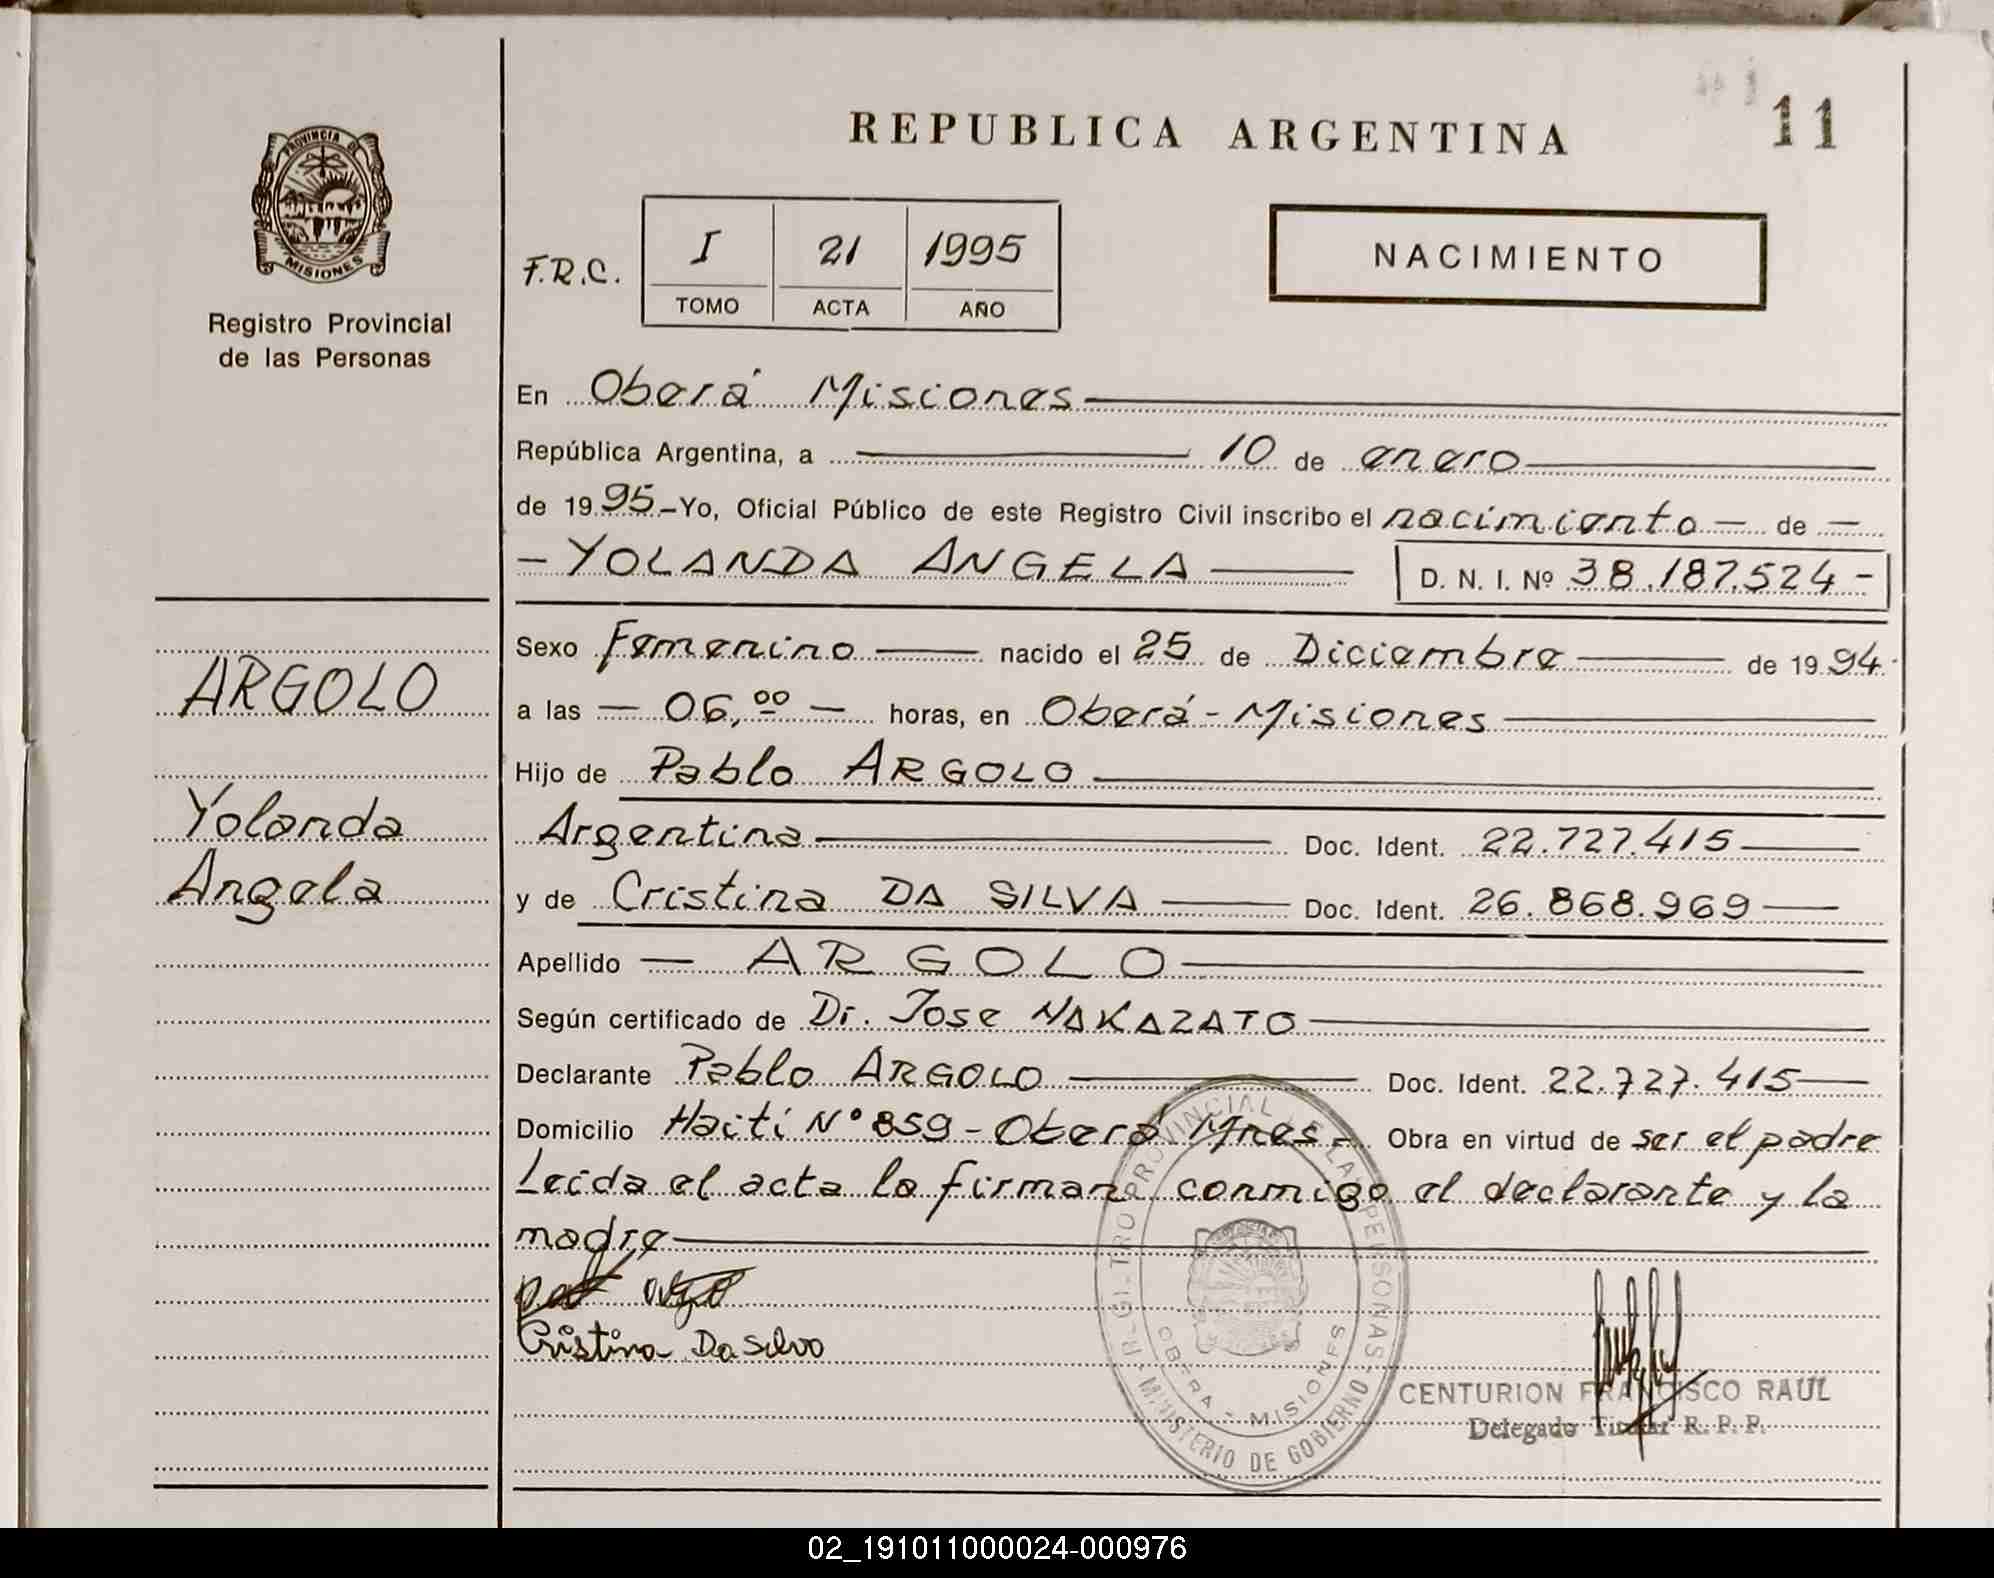 REPUBLICA ARGENTINA
11
PROVINCIA DE
MISIONES
Registro Provincial
de las Personas
F.R.C.
I 21 1995
TOMO ACTA AÑO
NACIMIENTO
En Oberá Misiones
República Argentina, a 10 de enero
de 1995.- Yo, Oficial Público de este Registro Civil inscribo el nacimiento - de -
- YOLANDA ANGELA D. N. I. Nº 38.187.524-
Sexo Femenino nacido el 25 de Diciembre de 1994.
a las - 06,00 - horas, en Oberá - Misiones
Hijo de Pablo ARGOLO
Argentina Doc. Ident. 22.727.415
y de Cristina DA SILVA Doc. Ident. 26.868.969
Apellido - ARGOLO
Según certificado de Dr. Jose NAKAZATO
Declarante Pablo ARGOLO Doc. Ident. 22.727.415
Domicilio Haití Nº 859 - Oberá Mnes - Obra en virtud de ser el padre
Leida el acta la firman conmigo el declarante y la
madre
Cristina Da Silva
ARGOLO
Yolanda
Angela
REGISTRO PROVINCIAL DE LAS PERSONAS - MINISTERIO DE GOBIERNO -
OBERA - MISIONES
CENTURION FRANCISCO RAUL
Delegado Titular R. P. P.
02_191011000024-000976